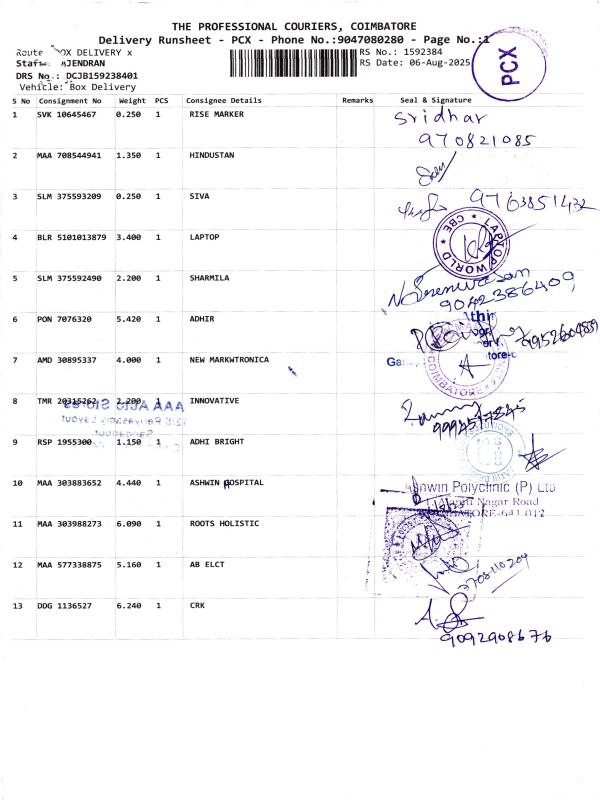 THE PROFESSIONAL COURIERS, COIMBATORE
Delivery Runsheet - PCX - Phone No.:9047080280 - Page No.:1
Route BOX DELIVERY x
RS No.: 1592384
JENDRAN
RS Date: 06-Aug-2025
DRS No.: DCJB159238401
Vehicle: Box Delivery
PCX
S No Consignment No Weight PCS Consignee Details Remarks Seal & Signature
1 SVK 10645467 0.250 1 RISE MARKER
Sridhar
970821085
2 MAA 708544941 1.350 1 HINDUSTAN
3 SLM 375593209 0.250 1 SIVA
9763851432
4 BLR 5101013879 3.400 1 LAPTOP
LAPTOP WORLD ★ CBE ★
5 SLM 375592490 2.200 1 SHARMILA
N Sreenivasan
9042386409
6 PON 7076320 5.420 1 ADHIR
7 AMD 30895337 4.000 1 NEW MARKWTRONICA
COIMBATORE
8 TMR 20315262 2.200 1 INNOVATIVE
9994517345
9 RSP 1955300 1.150 1 ADHI BRIGHT
10 MAA 303883652 4.440 1 ASHWIN HOSPITAL
Ashwin Polyclinic (P) Ltd
Nagar Road
COIMBATORE-641 012
11 MAA 303988273 6.090 1 ROOTS HOLISTIC
12 MAA 577338875 5.160 1 AB ELCT
3708110209
13 DDG 1136527 6.240 1 CRK
9092908676